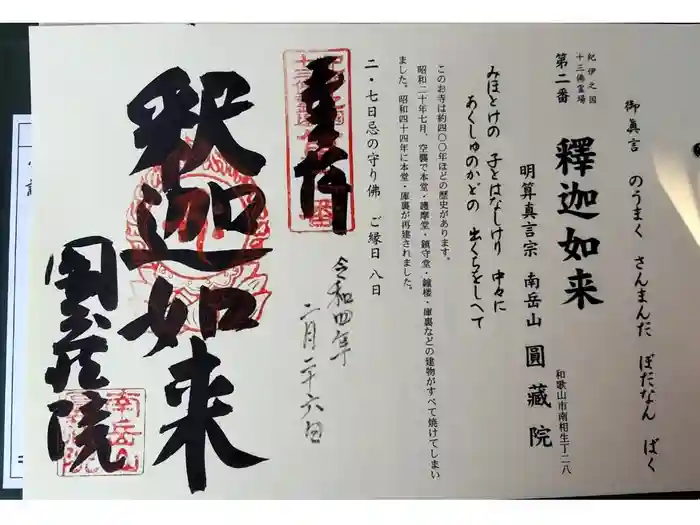 御眞言 のうまく さんまんだ ぼだなん ばく
紀伊之国
十三佛霊場
第二番 釋迦如来
明算真言宗 南岳山 圓藏院
和歌山市南相生丁二八
みほとけの 子とはなしけり 中々に
あくしゅのかどの 出くちをしへて
このお寺は約四〇〇年ほどの歴史があります。
昭和二十年七月、空襲で本堂・護摩堂・鎮守堂・鐘楼・庫裏などの建物がすべて焼けてしまい
ました。昭和四十四年に本堂・庫裏が再建されました。
二・七日忌の守り佛 ご縁日 八日
令和四年
二月二十六日
釈迦如来
圓蔵院
南岳山